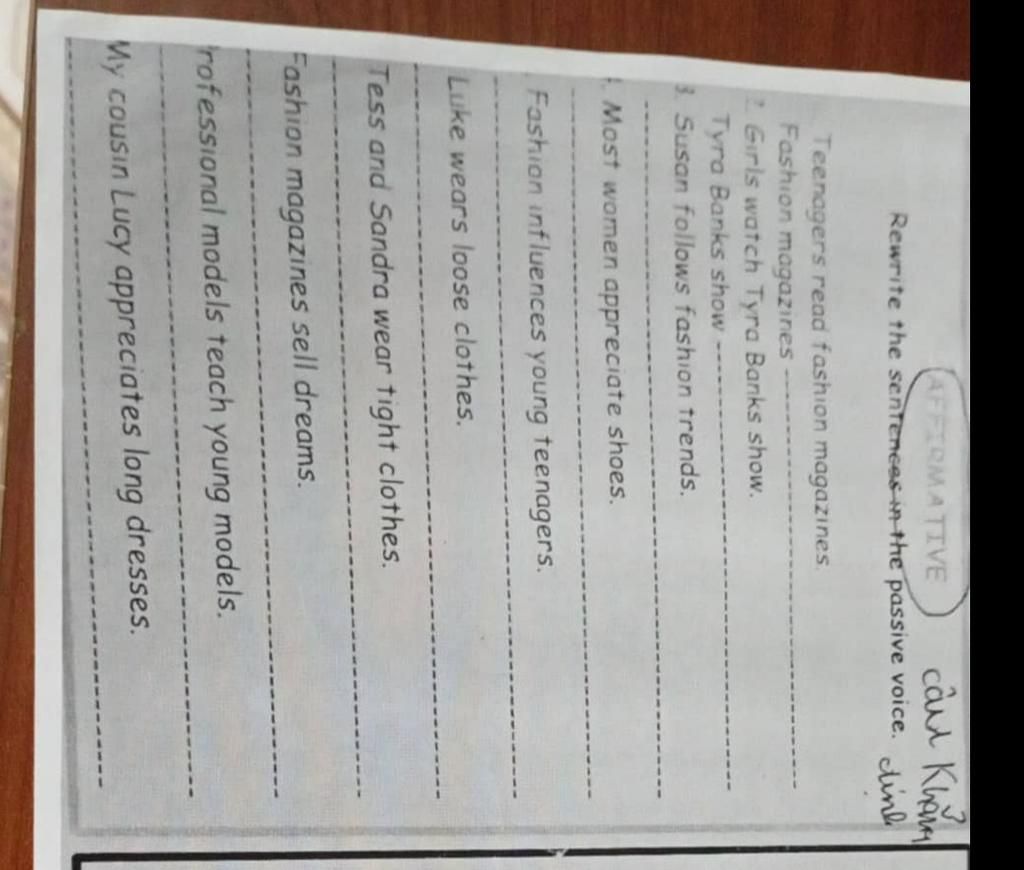 AFFIRMATIVE
câu Khẳng định
Rewrite the sentences in the passive voice.
Teenagers read fashion magazines.
Fashion magazines
2. Girls watch Tyra Banks show.
Tyra Banks show
3. Susan follows fashion trends.
4. Most women appreciate shoes.
Fashion influences young teenagers.
Luke wears loose clothes.
Tess and Sandra wear tight clothes.
Fashion magazines sell dreams.
rofessional models teach young models.
My cousin Lucy appreciates long dresses.